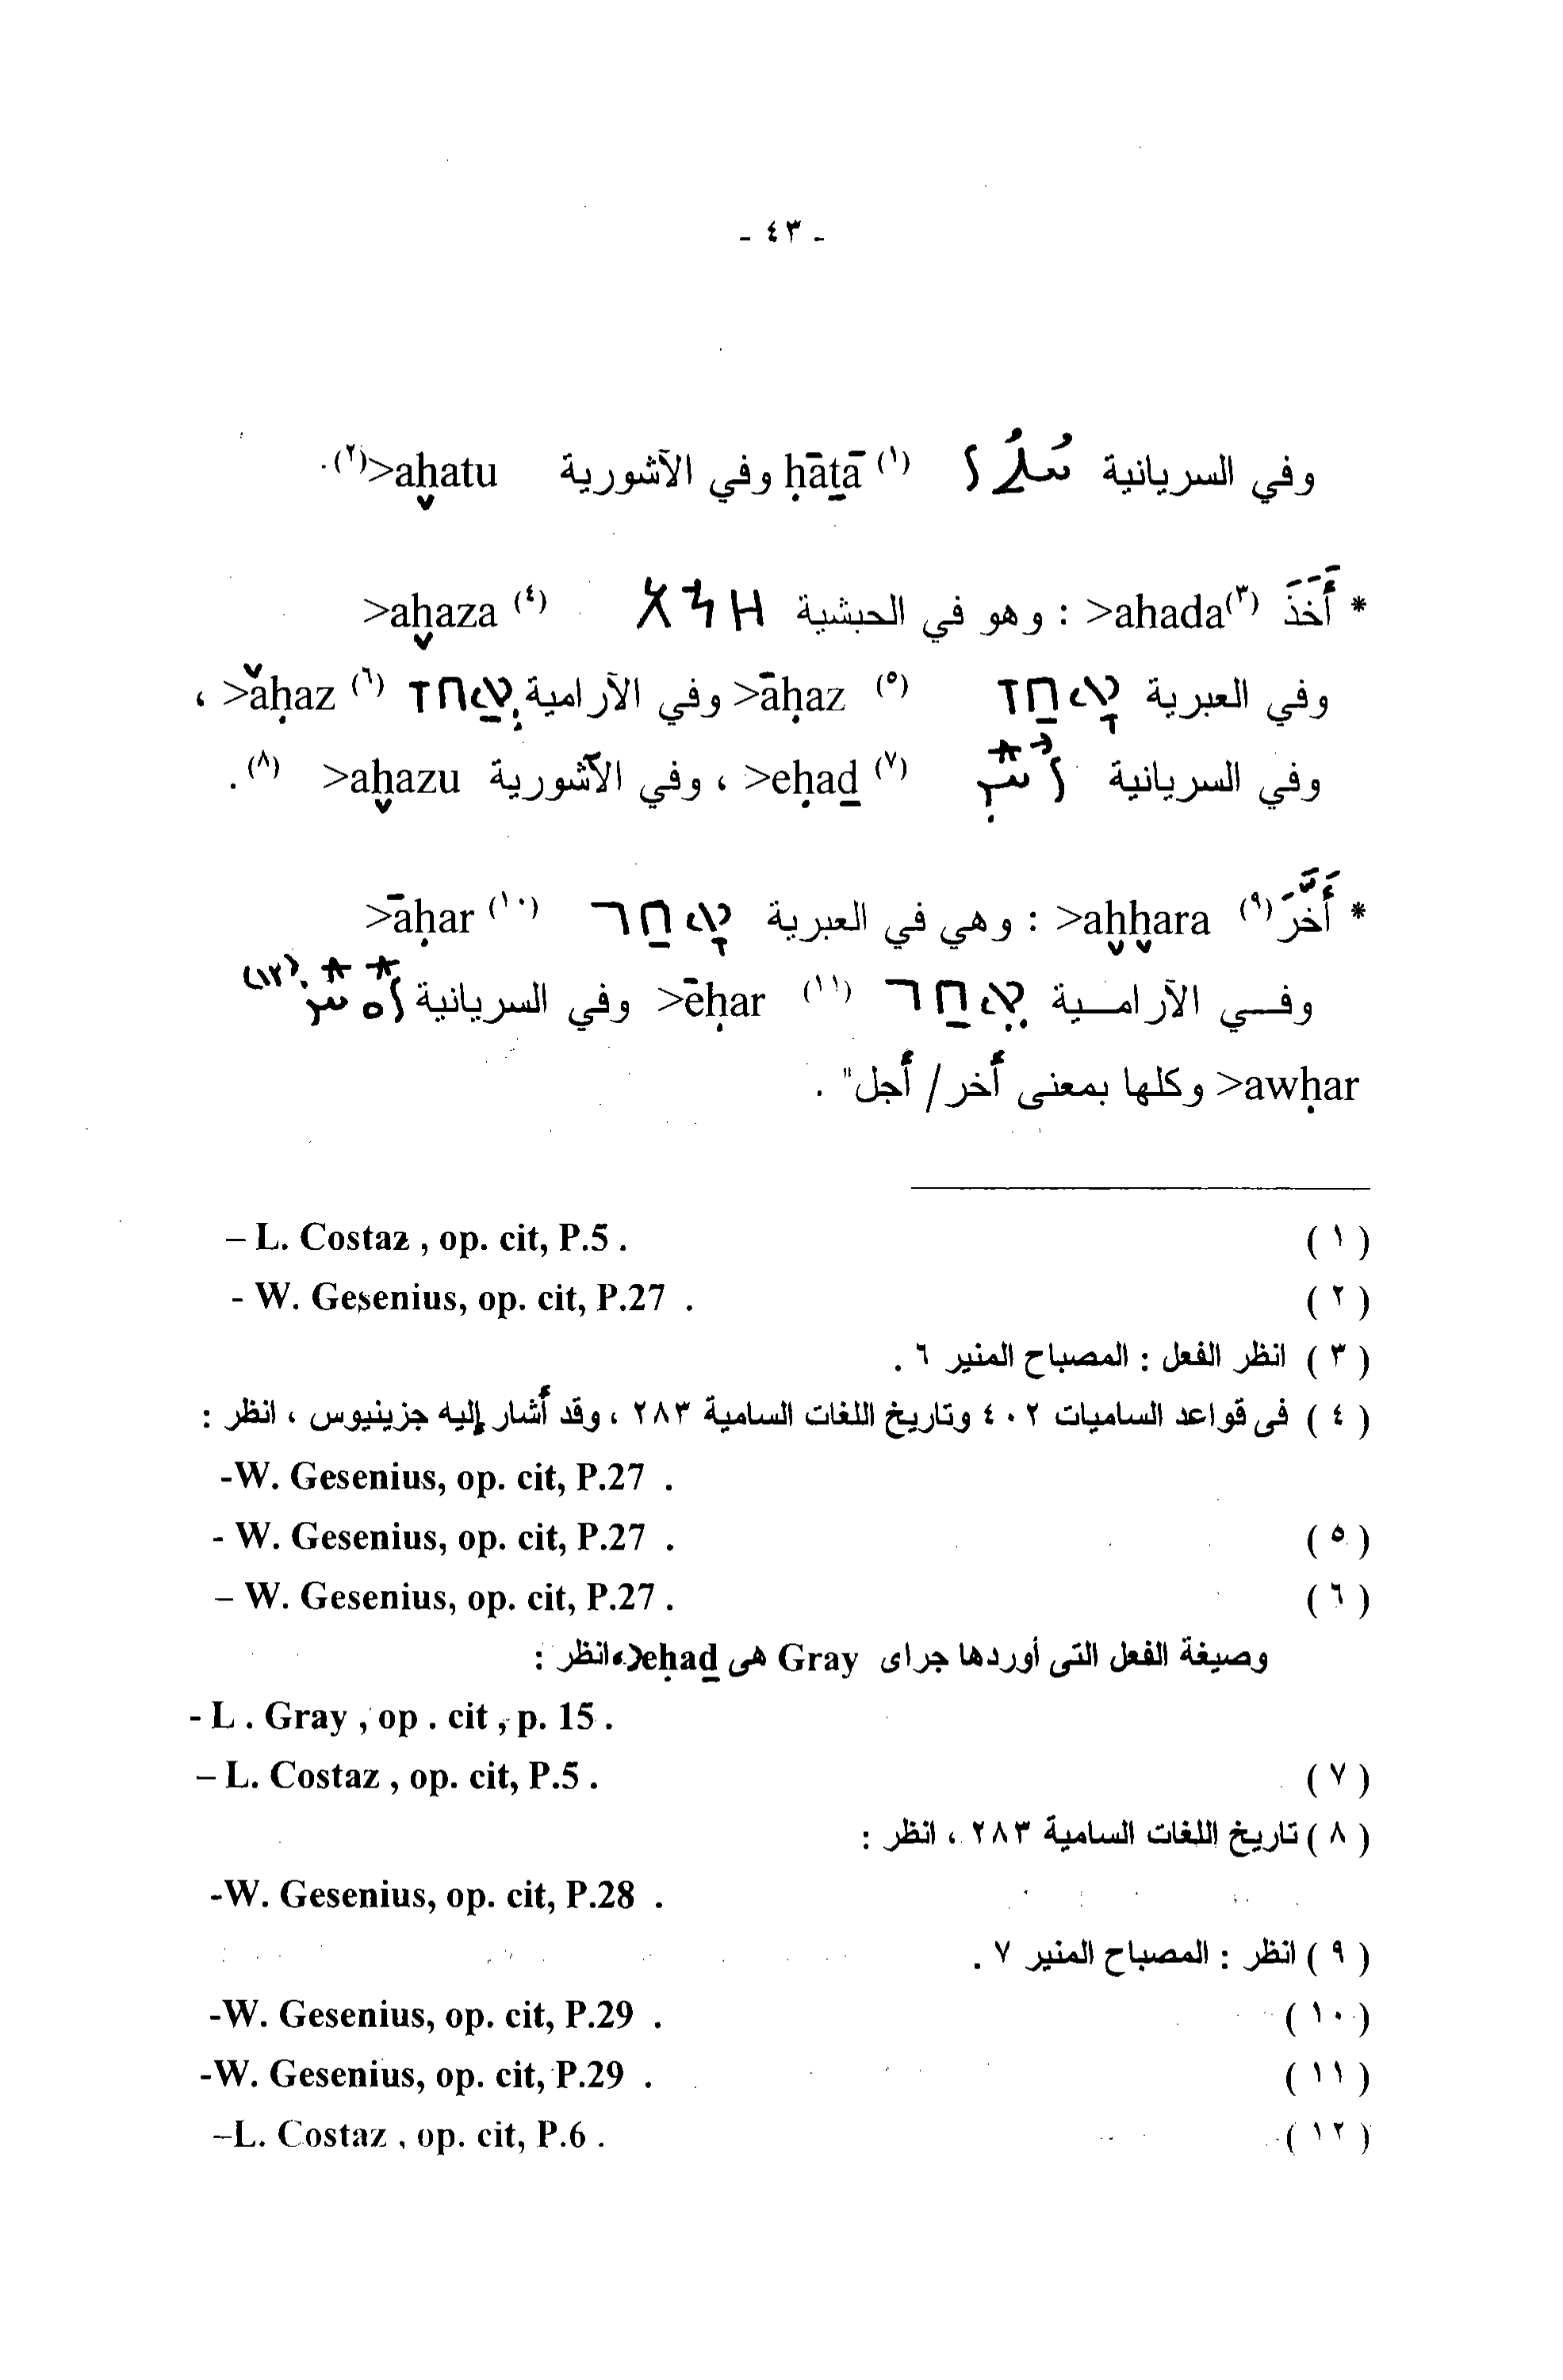 - ٤٣ -
وفي السريانية ܚܳܬܳܐ (١) ḥāṯā وفي الآشورية >aḫatu(٢).
* أَخَذَ (٣)>ahada : وهو في الحبشية አኀዘ (٤) >aḫaza
وفي العبرية אָחַז (٥) >āḥaz وفي الآرامية אֲחַז (٦) >ǎḥaz ،
وفي السريانية ܐܶܚܰܕ (٧) >eḥaḏ ، وفي الآشورية >aḫazu (٨) .
* أَخَّرَ (٩) >aḫḫara : وهي في العبرية אָחַר (١٠) >āḥar
وفــي الآرامــية אֵחַר (١١) >ēḥar وفي السريانية ܐܰܘܚܰܪ (١٢)
>awḥar وكلها بمعنى أخر / أجل" .
(١) – L. Costaz , op. cit, P.5 .
(٢) - W. Gesenius, op. cit, P.27 .
(٣) انظر الفعل : المصباح المنير ٦ .
(٤) فى قواعد الساميات ٤٠٢ وتاريخ اللغات السامية ٢٨٣ ، وقد أشار إليه جزينيوس ، انظر :
-W. Gesenius, op. cit, P.27 .
(٥) - W. Gesenius, op. cit, P.27 .
(٦) – W. Gesenius, op. cit, P.27 .
وصيغة الفعل التى أوردها جراى Gray هى >eḥaḏ، انظر :
- L . Gray , op . cit , p. 15 .
(٧) – L. Costaz , op. cit, P.5 .
(٨) تاريخ اللغات السامية ٢٨٣ ، انظر :
-W. Gesenius, op. cit, P.28 .
(٩) انظر : المصباح المنير ٧ .
(١٠) -W. Gesenius, op. cit, P.29 .
(١١) -W. Gesenius, op. cit, P.29 .
(١٢) –L. Costaz , op. cit, P.6 .